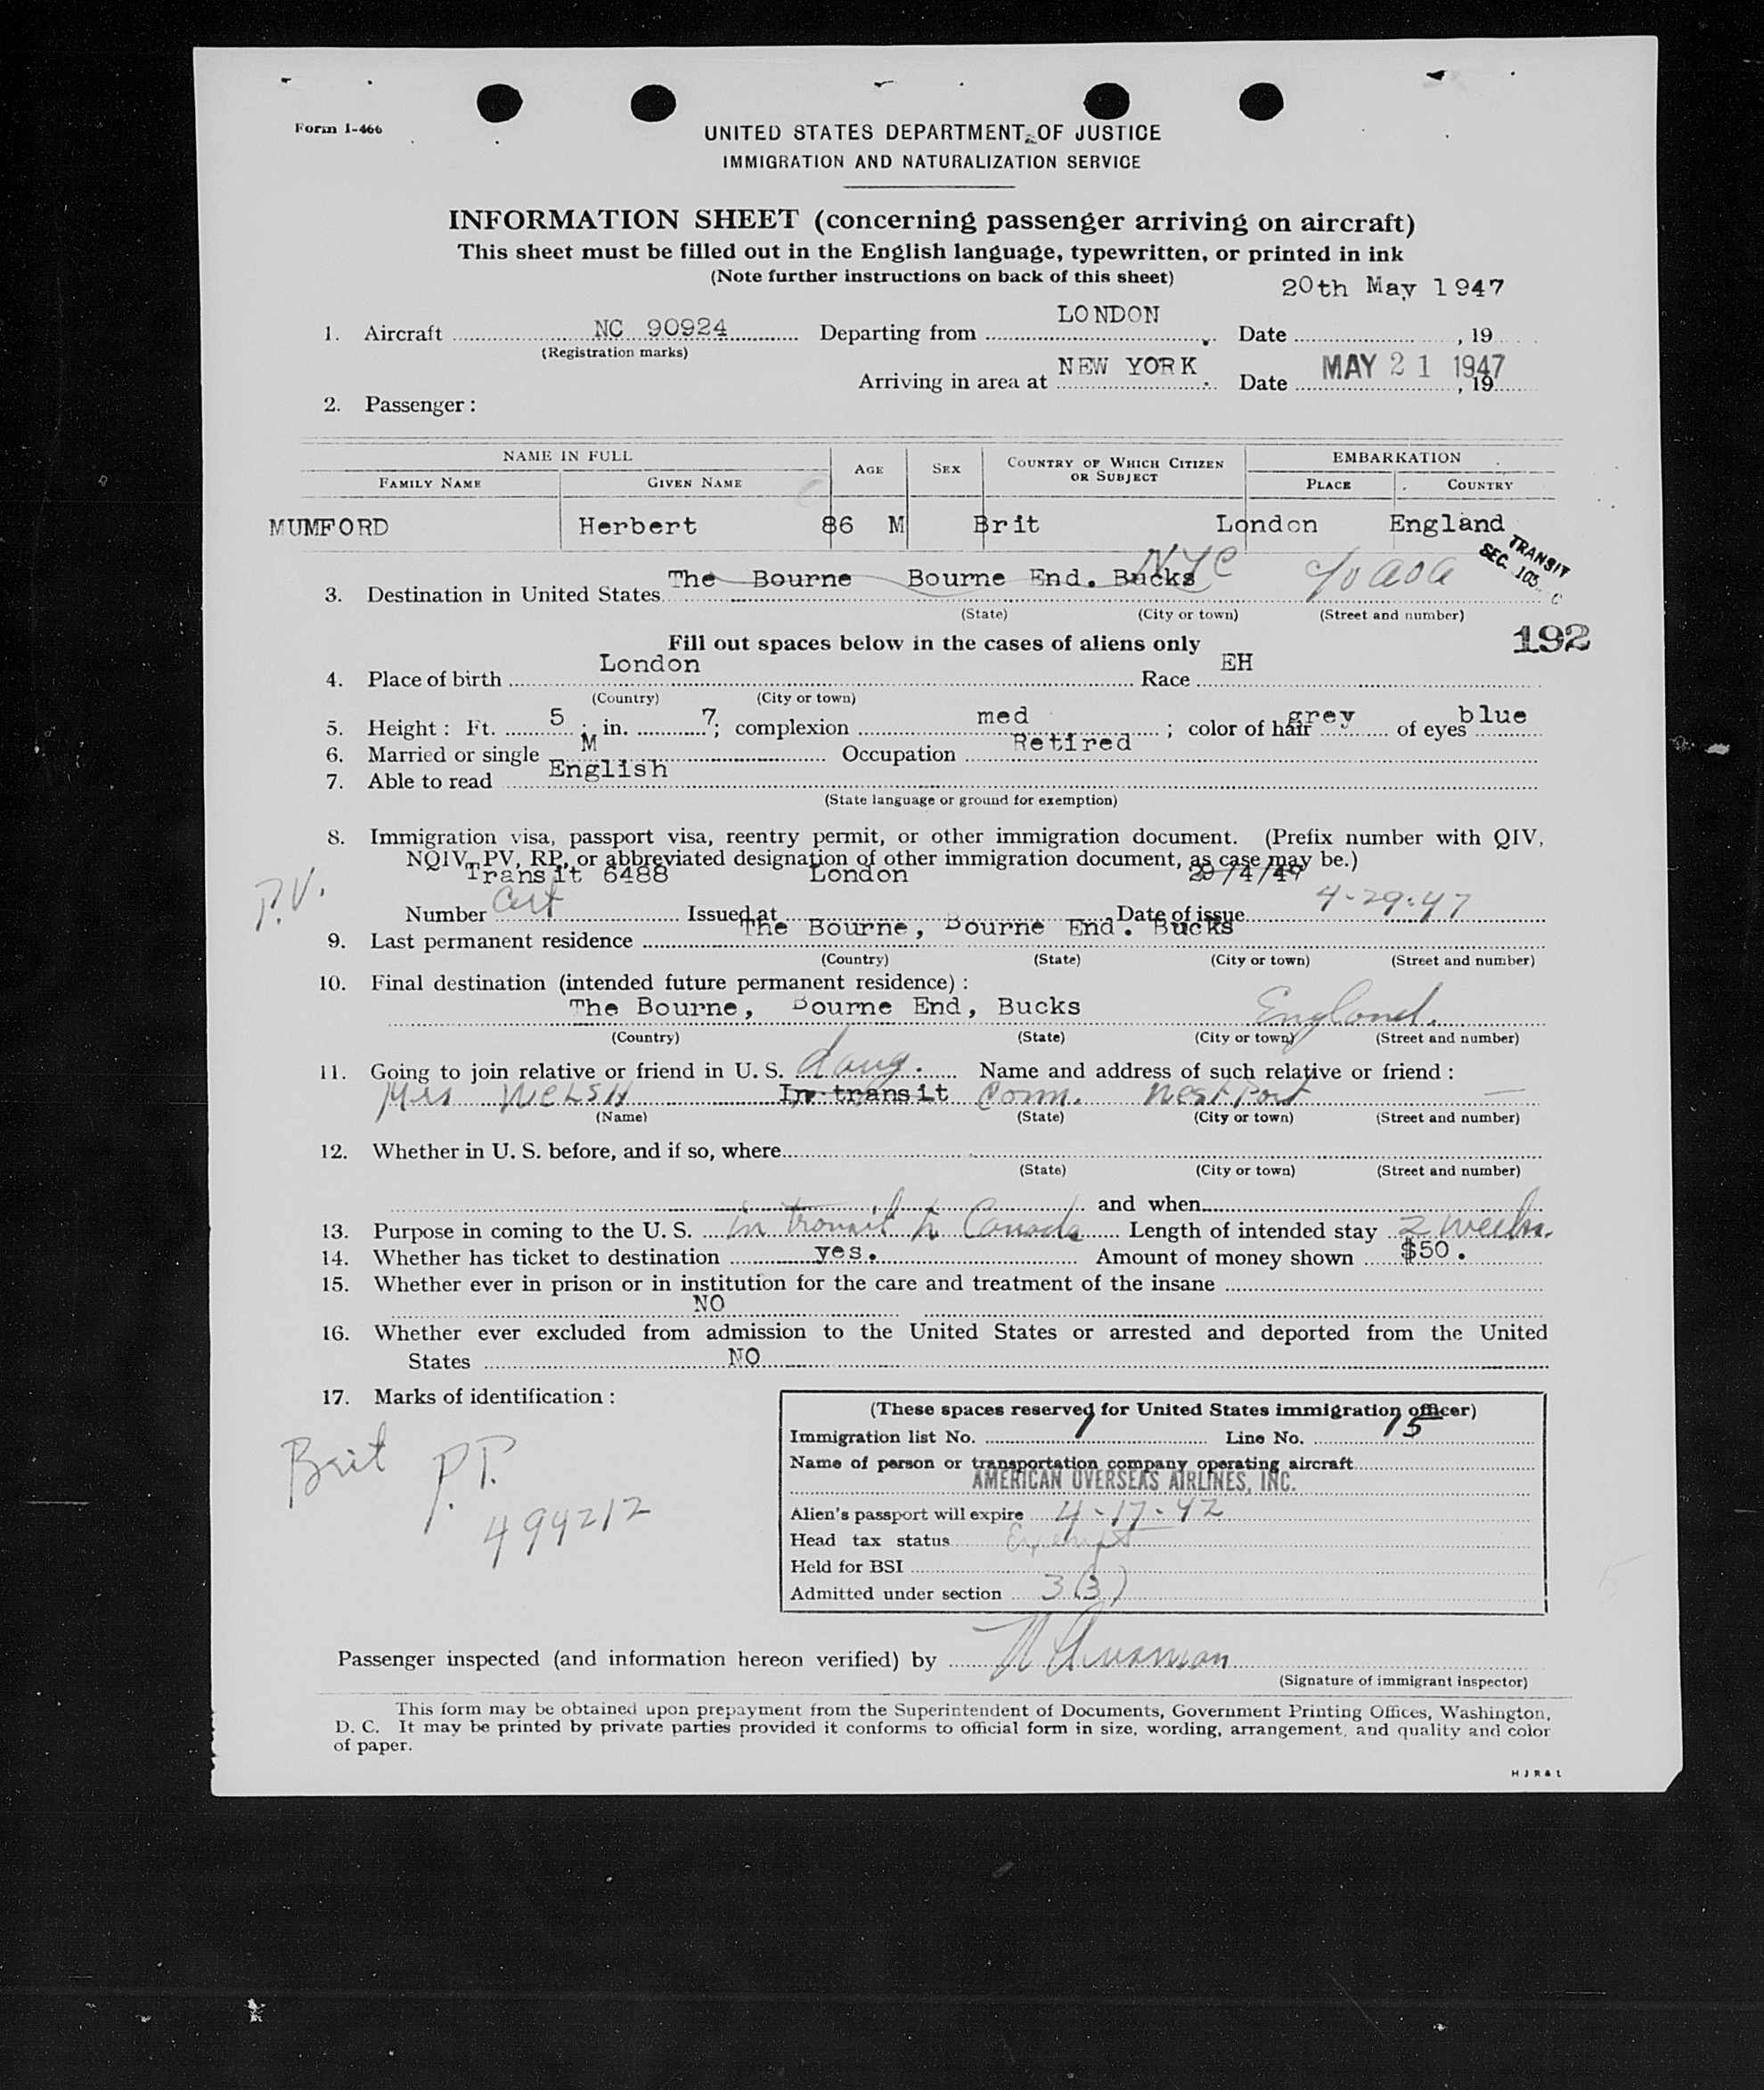 Form I-466
UNITED STATES DEPARTMENT OF JUSTICE
IMMIGRATION AND NATURALIZATION SERVICE
INFORMATION SHEET (concerning passenger arriving on aircraft)
This sheet must be filled out in the English language, typewritten, or printed in ink
(Note further instructions on back of this sheet)
20th May 1947
1. Aircraft NC 90924 Departing from LONDON Date , 19
(Registration marks)
Arriving in area at NEW YORK Date MAY 21 1947 , 19
2. Passenger :
NAME IN FULL AGE SEX COUNTRY OF WHICH CITIZEN OR SUBJECT EMBARKATION
FAMILY NAME GIVEN NAME PLACE COUNTRY
MUMFORD Herbert 86 M Brit London England
TRANSIT
SEC. 103
NYC c/o AOA
3. Destination in United States The Bourne Bourne End. Bucks
(State) (City or town) (Street and number)
192
Fill out spaces below in the cases of aliens only
4. Place of birth London Race EH
(Country) (City or town)
5. Height : Ft. 5 ; in. 7; complexion med ; color of hair grey of eyes blue
6. Married or single M Occupation Retired
7. Able to read English
(State language or ground for exemption)
8. Immigration visa, passport visa, reentry permit, or other immigration document. (Prefix number with QIV,
NQIV, PV, RP, or abbreviated designation of other immigration document, as case may be.)
Transit 6488 London 29/4/47
P.V.
Number Cert Issued at Date of issue 4-29-47
9. Last permanent residence The Bourne, Bourne End. Bucks
(Country) (State) (City or town) (Street and number)
10. Final destination (intended future permanent residence) :
The Bourne, Bourne End, Bucks England.
(Country) (State) (City or town) (Street and number)
11. Going to join relative or friend in U. S. daug. Name and address of such relative or friend :
Mrs WELSH In transit Conn. Westport
(Name) (State) (City or town) (Street and number)
12. Whether in U. S. before, and if so, where
(State) (City or town) (Street and number)
and when
13. Purpose in coming to the U. S. in transit to Canada Length of intended stay 2 weeks.
14. Whether has ticket to destination yes. Amount of money shown $50.
15. Whether ever in prison or in institution for the care and treatment of the insane
NO
16. Whether ever excluded from admission to the United States or arrested and deported from the United
States NO
17. Marks of identification :
Brit P.P.
494212
(These spaces reserved for United States immigration officer)
Immigration list No. 1 Line No. 15
Name of person or transportation company operating aircraft
AMERICAN OVERSEAS AIRLINES, INC.
Alien's passport will expire 4-17-42
Head tax status Exempt
Held for BSI
Admitted under section 3(3)
Passenger inspected (and information hereon verified) by
(Signature of immigrant inspector)
This form may be obtained upon prepayment from the Superintendent of Documents, Government Printing Offices, Washington,
D. C. It may be printed by private parties provided it conforms to official form in size, wording, arrangement, and quality and color
of paper.
H J R & L